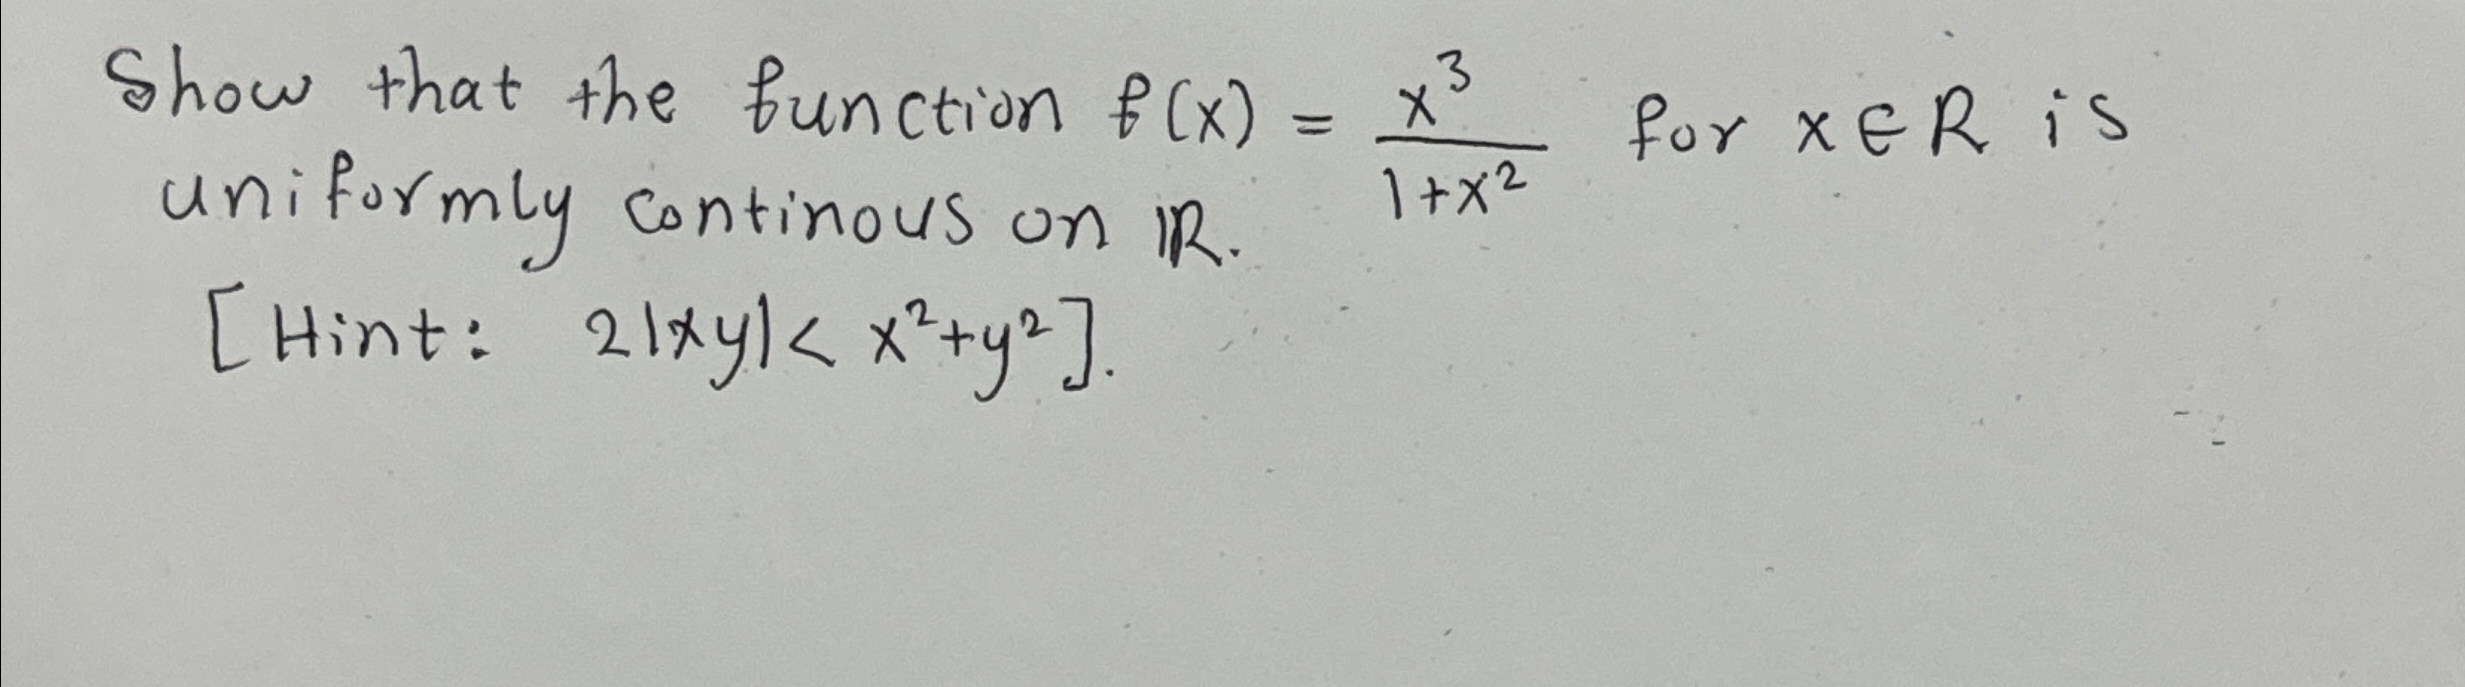 Show that the function f(x) = x³/(1+x²) for x∈R is
uniformly continous on ℝ.
[Hint: 2|xy|< x²+y²].